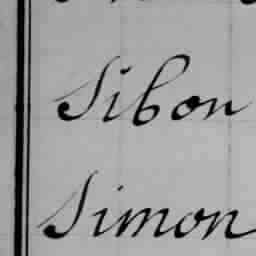 Sibon
Simon